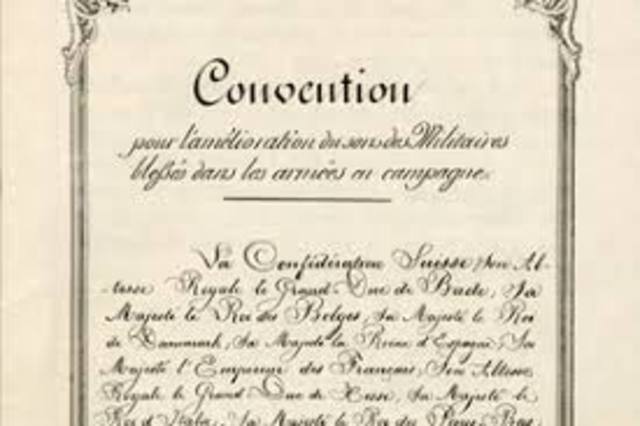 Convention
pour l'amélioration du sort des Militaires
blessés dans les armées en campagne.
La Confédération Suisse, Son Al-
-tesse Royale le Grand-Duc de Bade, Sa
Majesté le Roi des Belges, Sa Majesté le Roi
de Danemark, Sa Majesté la Reine d'Espagne, Sa
Majesté l'Empereur des Français, Son Altesse
Royale le Grand-Duc de Hesse, Sa Majesté le
Roi d'Italie, Sa Majesté le Roi des Pays-Bas,